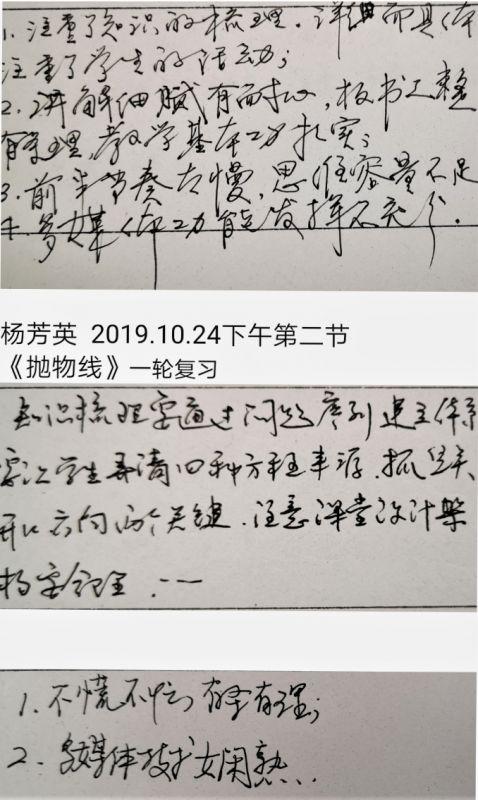 1. 注重了知识的梳理. 详细而具体
注重了学生的活动;
2. 讲解细腻有耐心, 板书工整
有条理, 教学基本功扎实;
3. 前半节奏太慢, 思维容量不足
4. 多媒体功能发挥不充分.
杨芳英 2019.10.24下午第二节
《抛物线》一轮复习
知识梳理要通过问题序列建立体系
要让学生弄清四种方程来源. 抓焦点
开口方向两个关键. 注意课堂设计
1. 不慌不忙, 有条有理;
2. 多媒体技术娴熟...